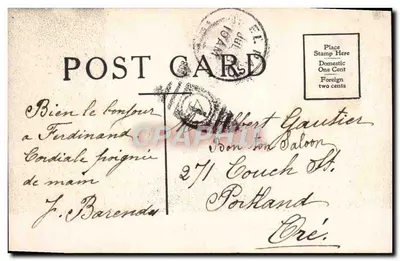 POST CARD
Place
Stamp Here
Domestic
One Cent
Foreign
two cents
JUL
10 AM
Bien le bonjour
a Ferdinand
Cordiale poignée
de main
F. Barende
Albert Gautier
Bon ton Saloon
271 Couch St.
Portland
Oré.